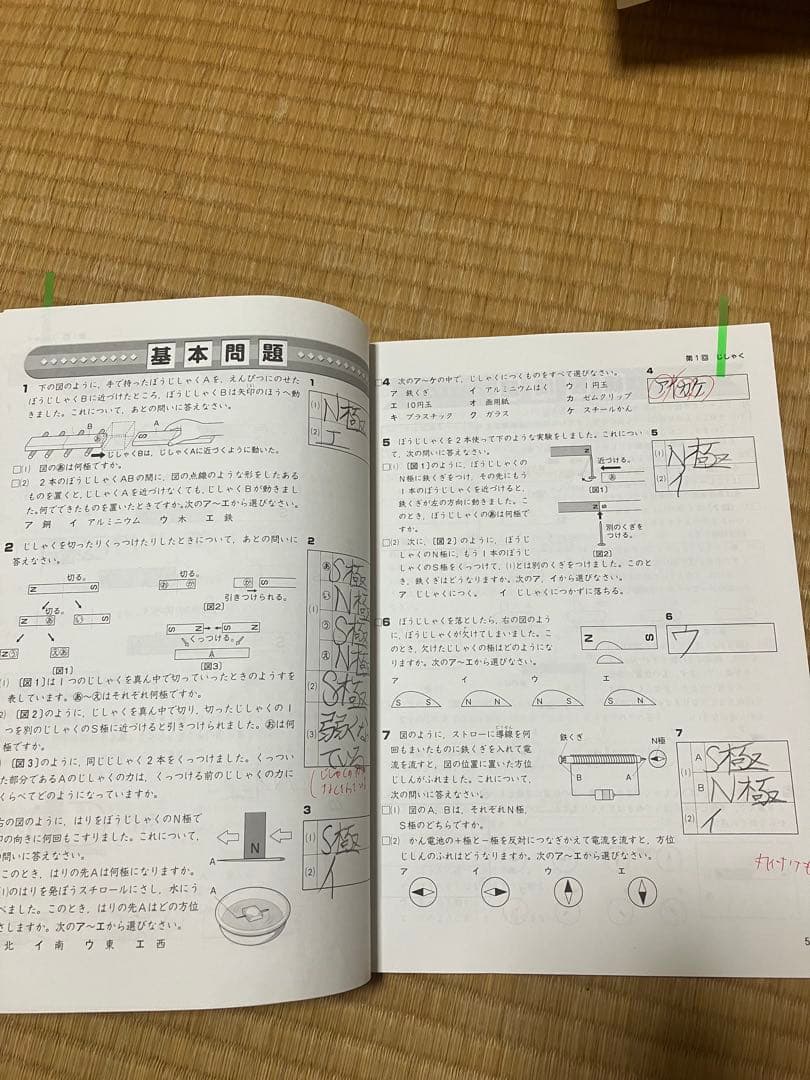 基本問題
1 下の図のように,手で持ったぼうじしゃくAを,えんぴつにのせた
ぼうじしゃくBに近づけたところ,ぼうじしゃくBは矢印のほうへ動
きました。これについて,あとの問いに答えなさい。
B
A
あ
S
じしゃくBは,じしゃくAに近づくように動いた。
□(1) 図のあは何極ですか。
□(2) 2本のぼうじしゃくABの間に,図の点線のような形をしたある
ものを置くと,じしゃくAを近づけなくても,じしゃくBが動きまし
た。何でできたものを置いたときですか。次のア~エから選びなさい。
ア 銅 イ アルミニウム ウ 木 エ 鉄
1
(1) N極
(2) エ
2 じしゃくを切ったりくっつけたりしたときについて,あとの問いに
答えなさい。
切る。
N S
切る。
N あ い S
N う え あ
〔図1〕
切る。
お か
か S
引きつけられる。
〔図2〕
S N N S
くっつける。
A
〔図3〕
(1) 〔図1〕は1つのじしゃくを真ん中で切っていったときのようすを
表しています。あ~えはそれぞれ何極ですか。
2) 〔図2〕のように,じしゃくを真ん中で切り,切ったじしゃくの1
つを別のじしゃくのS極に近づけると引きつけられました。おは何
極ですか。
〔図3〕のように,同じじしゃく2本をくっつけました。くっつい
た部分であるAのじしゃくの力は,くっつける前のじしゃくの力に
くらべてどのようになっていますか。
2
(1)
あ S極
い N極
う S極
え N極
(2) S極
(3) 弱くな
ている
右の図のように,はりをぼうじしゃくのN極で
印の向きに何回もこすりました。これについて,
の問いに答えなさい。
このとき,はりの先Aは何極になりますか。
(1)のはりを発ぽうスチロールにさし,水にう
べました。このとき,はりの先Aはどの方位
さしますか。次のア~エから選びなさい。
北 イ 南 ウ 東 エ 西
A
N
A
3
(1) S極
(2) イ
第1回 じしゃく
□4 次のア~ケの中で,じしゃくにつくものをすべて選びなさい。
ア 鉄くぎ イ アルミニウムはく ウ 1円玉
エ 10円玉 オ 画用紙 カ ゼムクリップ
キ プラスチック ク ガラス ケ スチールかん
4
5 ぼうじしゃくを2本使って下のような実験をしました。これについ
て,次の問いに答えなさい。
□(1) 〔図1〕のように,ぼうじしゃくの
N極に鉄くぎをつけ,その先にもう
1本のぼうじしゃくを近づけると,
鉄くぎが左の方向に動きました。こ
のとき,ぼうじしゃくのあは何極で
すか。
□(2) 次に,〔図2〕のように,ぼうじ
しゃくのN極に,もう1本のぼうじ
しゃくのS極をくっつけて,(1)とは別のくぎをつけました。このと
き,鉄くぎはどうなりますか。次のア,イから選びなさい。
ア じしゃくにつく。 イ じしゃくにつかずに落ちる。
近づける。
あ
〔図1〕
別のくぎを
つける。
〔図2〕
5
(1) N極
(2) イ
□6 ぼうじしゃくを落としたら,右の図のよう
に,ぼうじしゃくが欠けてしまいました。こ
のとき,欠けたじしゃくの極はどのようにな
りますか。次のア~エから選びなさい。
N S
ア イ ウ エ
S S N N S N N S
6
ウ
7 図のように,ストローに導線を何
回もまいたものに鉄くぎを入れて電
流を流すと,図の位置に置いた方位
じしんがふれました。これについて,
次の問いに答えなさい。
□(1) 図のA,Bは,それぞれN極,
S極のどちらですか。
□(2) かん電池の+極と-極を反対につなぎかえて電流を流すと,方位
じしんのふれはどうなりますか。次のア~エから選びなさい。
ア イ ウ エ
鉄くぎ
N極
B A
7
(1)
A S極
B N極
(2) イ
5